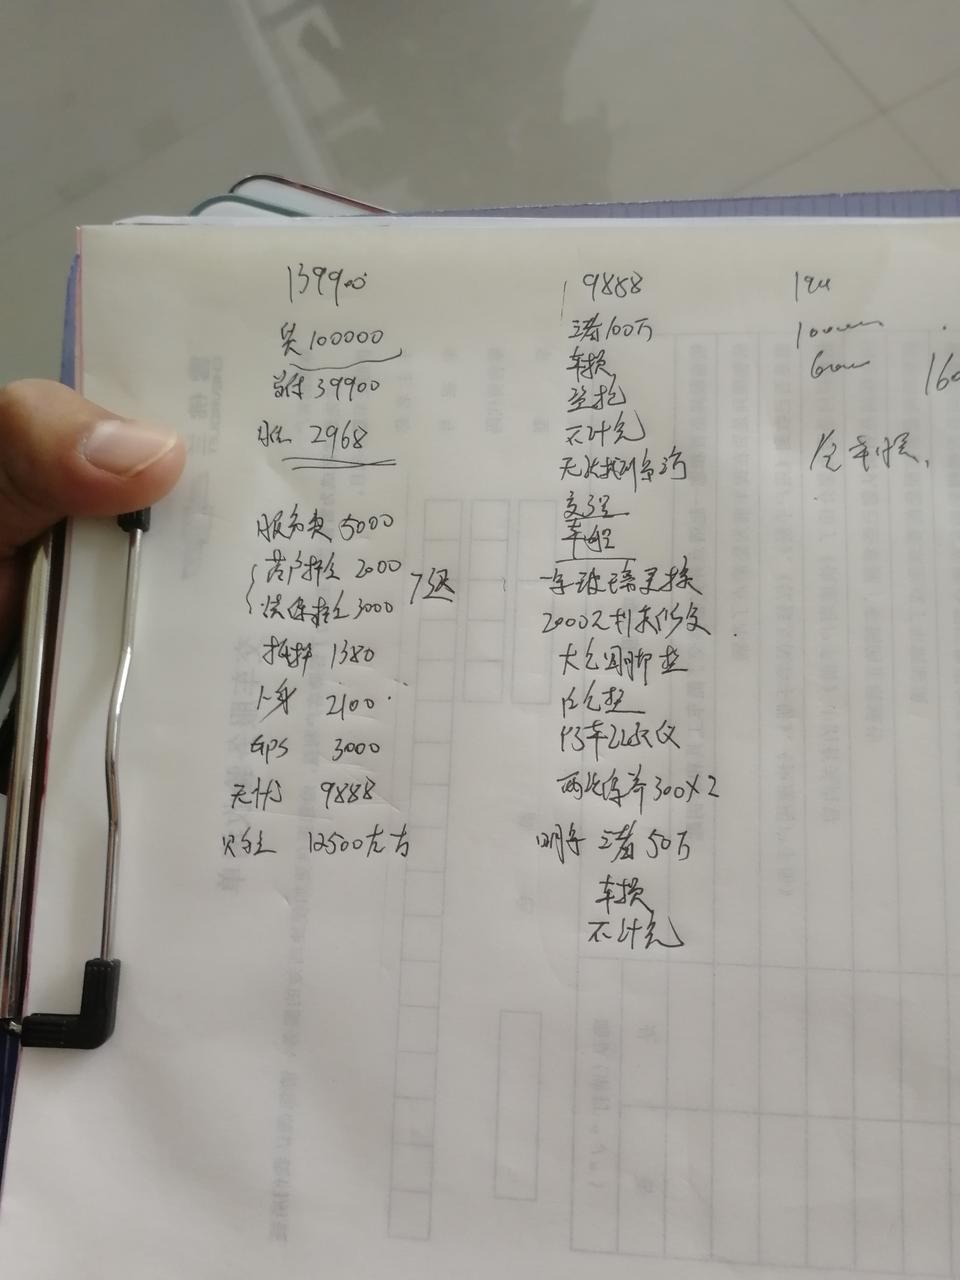 139900
贷 100000
首付 39900
月供 2968
服务费 5000
落户押金 2000
续保押金 3000
抵押 1380
上牌 2100
GPS 3000
无忧 9888
购置 12500左右
9888
三者100万
车损
盗抢
不计免
无法找到第三方
交强
车船
一年玻璃单换
2000元划痕修复
大包围脚垫
后仓垫
行车记录仪
两次保养300×2
明年 三者50万
车损
不计免
160